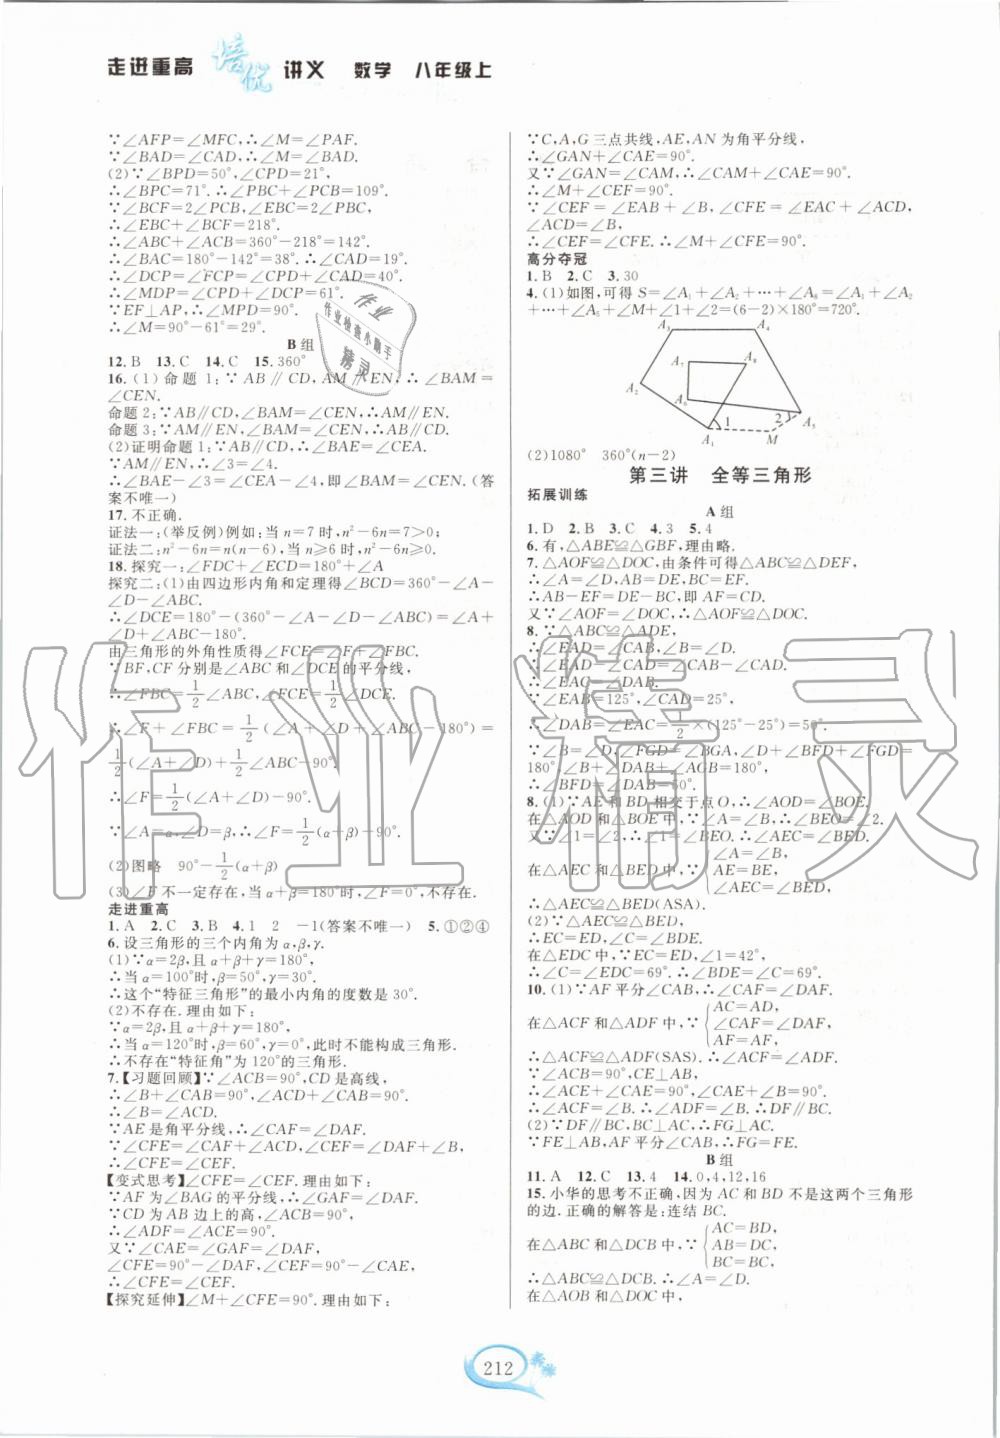 走进重高 培优 讲义 数学 八年级上
∵∠AFP=∠MFC,∴∠M=∠PAF.
∵∠BAD=∠CAD,∴∠M=∠BAD.
(2)∵∠BPD=50°,∠CPD=21°,
∴∠BPC=71°.∴∠PBC+∠PCB=109°.
∵∠BCF=2∠PCB,∠EBC=2∠PBC,
∴∠EBC+∠BCF=218°.
∴∠ABC+∠ACB=360°-218°=142°.
∴∠BAC=180°-142°=38°.∴∠CAD=19°.
∴∠DCP=∠FCP=∠CPD+∠CAD=40°.
∴∠MDP=∠CPD+∠DCP=61°.
∵EF⊥AP,∴∠MPD=90°.
∴∠M=90°-61°=29°.
B组
12.B 13.C 14.C 15.360°
16.(1)命题1:∵AB∥CD,AM∥EN,∴∠BAM=
∠CEN.
命题2:∵AB∥CD,∠BAM=∠CEN,∴AM∥EN.
命题3:∵AM∥EN,∠BAM=∠CEN,∴AB∥CD.
(2)证明命题1:∵AB∥CD,∴∠BAE=∠CEA.
∵AM∥EN,∴∠3=∠4.
∴∠BAE-∠3=∠CEA-∠4,即∠BAM=∠CEN.(答
案不唯一)
17.不正确.
证法一:(举反例)例如:当n=7时,n²-6n=7>0;
证法二:n²-6n=n(n-6),当n≥6时,n²-6n≥0.
18.探究一:∠FDC+∠ECD=180°+∠A
探究二:(1)由四边形内角和定理得∠BCD=360°-∠A-
∠D-∠ABC.
∴∠DCE=180°-(360°-∠A-∠D-∠ABC)=∠A+
∠D+∠ABC-180°.
由三角形的外角性质得∠FCE=∠F+∠FBC.
∵BF,CF分别是∠ABC和∠DCE的平分线,
∴∠FBC=1/2∠ABC,∠FCE=1/2∠DCE.
∴∠F+∠FBC=1/2(∠A+∠D+∠ABC-180°)=
1/2(∠A+∠D)+1/2∠ABC-90°.
∴∠F=1/2(∠A+∠D)-90°.
∵∠A=α,∠D=β,∴∠F=1/2(α+β)-90°.
(2)图略 90°-1/2(α+β)
(3)∠F不一定存在,当α+β=180°时,∠F不存在.
走进重高
1.A 2.C 3.B 4.1 2 -1(答案不唯一) 5.①②④
6.设三角形的三个内角为α,β,γ.
(1)∵α=2β,且α+β+γ=180°,
∴当α=100°时,β=50°,γ=30°.
∴这个“特征三角形”的最小内角的度数是30°.
(2)不存在.理由如下:
∵α=2β,且α+β+γ=180°,
∴当α=120°时,β=60°,γ=0°,此时不能构成三角形.
∴不存在“特征角”为120°的三角形.
7.【习题回顾】∵∠ACB=90°,CD是高线,
∴∠B+∠CAB=90°,∠ACD+∠CAB=90°.
∴∠B=∠ACD.
∵AE是角平分线,∴∠CAF=∠DAF.
∵∠CFE=∠CAF+∠ACD,∠CEF=∠DAF+∠B,
∴∠CFE=∠CEF.
【变式思考】∠CFE=∠CEF.理由如下:
∵AF为∠BAG的平分线,∴∠GAF=∠DAF.
∵CD为AB边上的高,∴∠ACB=90°.
∴∠ADF=∠ACE=90°.
又∵∠CAE=∠GAF=∠DAF,
∠CFE=90°-∠DAF,∠CEF=90°-∠CAE,
∴∠CFE=∠CEF.
【探究延伸】∠M+∠CFE=90°.理由如下:
∵C,A,G三点共线,AE,AN为角平分线,
∴∠GAN+∠CAE=90°.
又∵∠GAN=∠CAM,∴∠CAM+∠CAE=90°.
∴∠M+∠CEF=90°.
∵∠CEF=∠EAB+∠B,∠CFE=∠EAC+∠ACD,
∠ACD=∠B,
∴∠CEF=∠CFE.∴∠M+∠CFE=90°.
高分夺冠
1.B 2.C 3.30
4.(1)如图,可得S=∠A₁+∠A₂+…+∠A₈=∠A₁+∠A₂
+…+∠A₅+∠M+∠1+∠2=(6-2)×180°=720°.
A₃ A₄ A₇ A₈ A₂ A₆ 1 2 A₅ A₁ M
(2)1080° 360°(n-2)
第三讲 全等三角形
拓展训练
A组
1.D 2.B 3.C 4.3 5.4
6.有,△ABE≌△GBF,理由略.
7.△AOF≌△DOC,由条件可得△ABC≌△DEF,
∴∠A=∠D,AB=DE,BC=EF.
∴AB-EF=DE-BC,即AF=CD.
又∵∠AOF=∠DOC,∴△AOF≌△DOC.
8.∵△ABC≌△ADE,
∴∠EAD=∠CAB,∠B=∠D.
∴∠EAD-∠CAD=∠CAB-∠CAD.
∴∠EAC=∠DAB.
∵∠EAB=125°,∠CAD=25°,
∴∠DAB=∠EAC=1/2×(125°-25°)=50°.
∵∠B=∠D,∠FGD=∠BGA,∠D+∠BFD+∠FGD=
180°,∠B+∠DAB+∠AGB=180°,
∴∠BFD=∠DAB=50°.
8.(1)∵AE和BD相交于点O,∴∠AOD=∠BOE.
在△AOD和△BOE中,∵∠A=∠B,∴∠BEO=∠2.
又∵∠1=∠2,∴∠1=∠BEO.∴∠AEC=∠BED.
在△AEC和△BED中,∵{∠A=∠B,
AE=BE,
∠AEC=∠BED,
∴△AEC≌△BED(ASA).
(2)∵△AEC≌△BED,
∴EC=ED,∠C=∠BDE.
在△EDC中,∵EC=ED,∠1=42°,
∴∠C=∠EDC=69°.∴∠BDE=∠C=69°.
10.(1)∵AF平分∠CAB,∴∠CAF=∠DAF.
在△ACF和△ADF中,∵{AC=AD,
∠CAF=∠DAF,
AF=AF,
∴△ACF≌△ADF(SAS).∴∠ACF=∠ADF.
∵∠ACB=90°,CE⊥AB,
∴∠ACE+∠CAE=90°,∠CAE+∠B=90°.
∴∠ACF=∠B.∴∠ADF=∠B.∴DF∥BC.
(2)∵DF∥BC,BC⊥AC,∴FG⊥AC.
∵FE⊥AB,AF平分∠CAB,∴FG=FE.
B组
11.A 12.C 13.4 14.0,4,12,16
15.小华的思考不正确,因为AC和BD不是这两个三角形
的边.正确的解答是:连结BC.
在△ABC和△DCB中,∵{AC=BD,
AB=DC,
BC=BC,
∴△ABC≌△DCB.∴∠A=∠D.
在△AOB和△DOC中,
212
作业精灵
作业
作业检查小助手
精灵